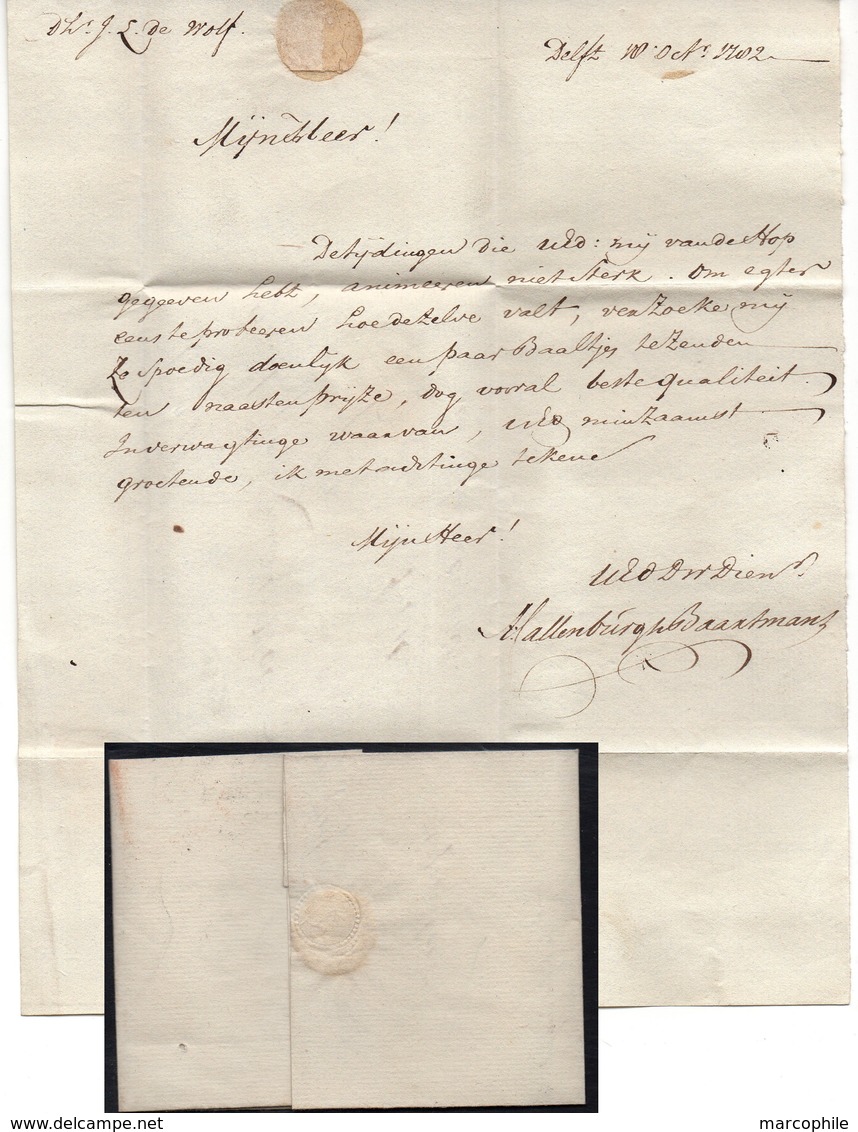 Dhr. J. L. de Wolf.
Delft 18 Octr. 1782
Mijn Heer!
De tijdingen die UEd: mij van de Hop
gegeeven hebt, animeeren niet sterk. Om egter
eens te probeeren hoe dezelve valt, verzoeke mij
Zo Spoedig doenlijk een paar Baaltjes te Zenden
ten naasten prijze, dog vooral beste qualiteit.
In verwagtinge waarvan, UEd minzaamst
groetende, ik met achtinge tekene
Mijn Heer!
UEd DW Dienr.
Hallenburgh Baartmans
marcophile